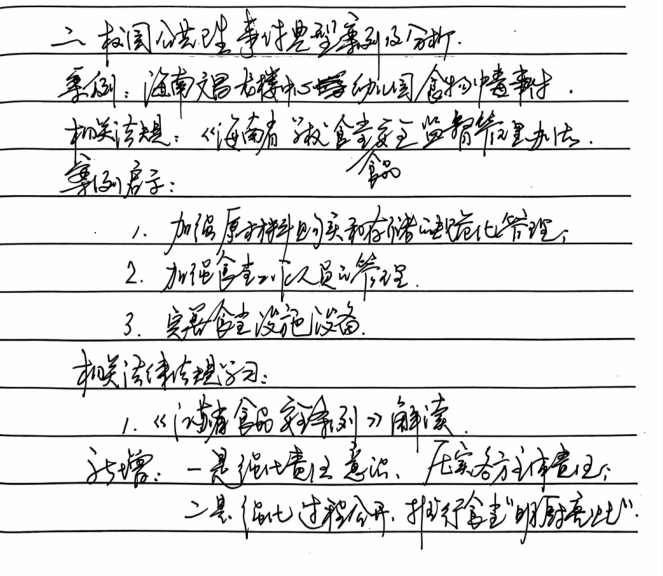 二、校园公共卫生事件典型案例及分析.
案例：海南文昌龙楼中心幼儿园食物中毒事件.
相关法规：《海南省学校食堂食品安全监督管理办法.
案例启示：
1. 加强原材料购买和存储的规范化管理；
2. 加强食堂工作人员的管理.
3. 完善食堂设施设备.
相关法律法规学习：
1.《江苏省食品安全条例》解读.
新增：一是强化责任意识、压实各方主体责任；
二是强化过程公开，推行食堂“明厨亮灶”.